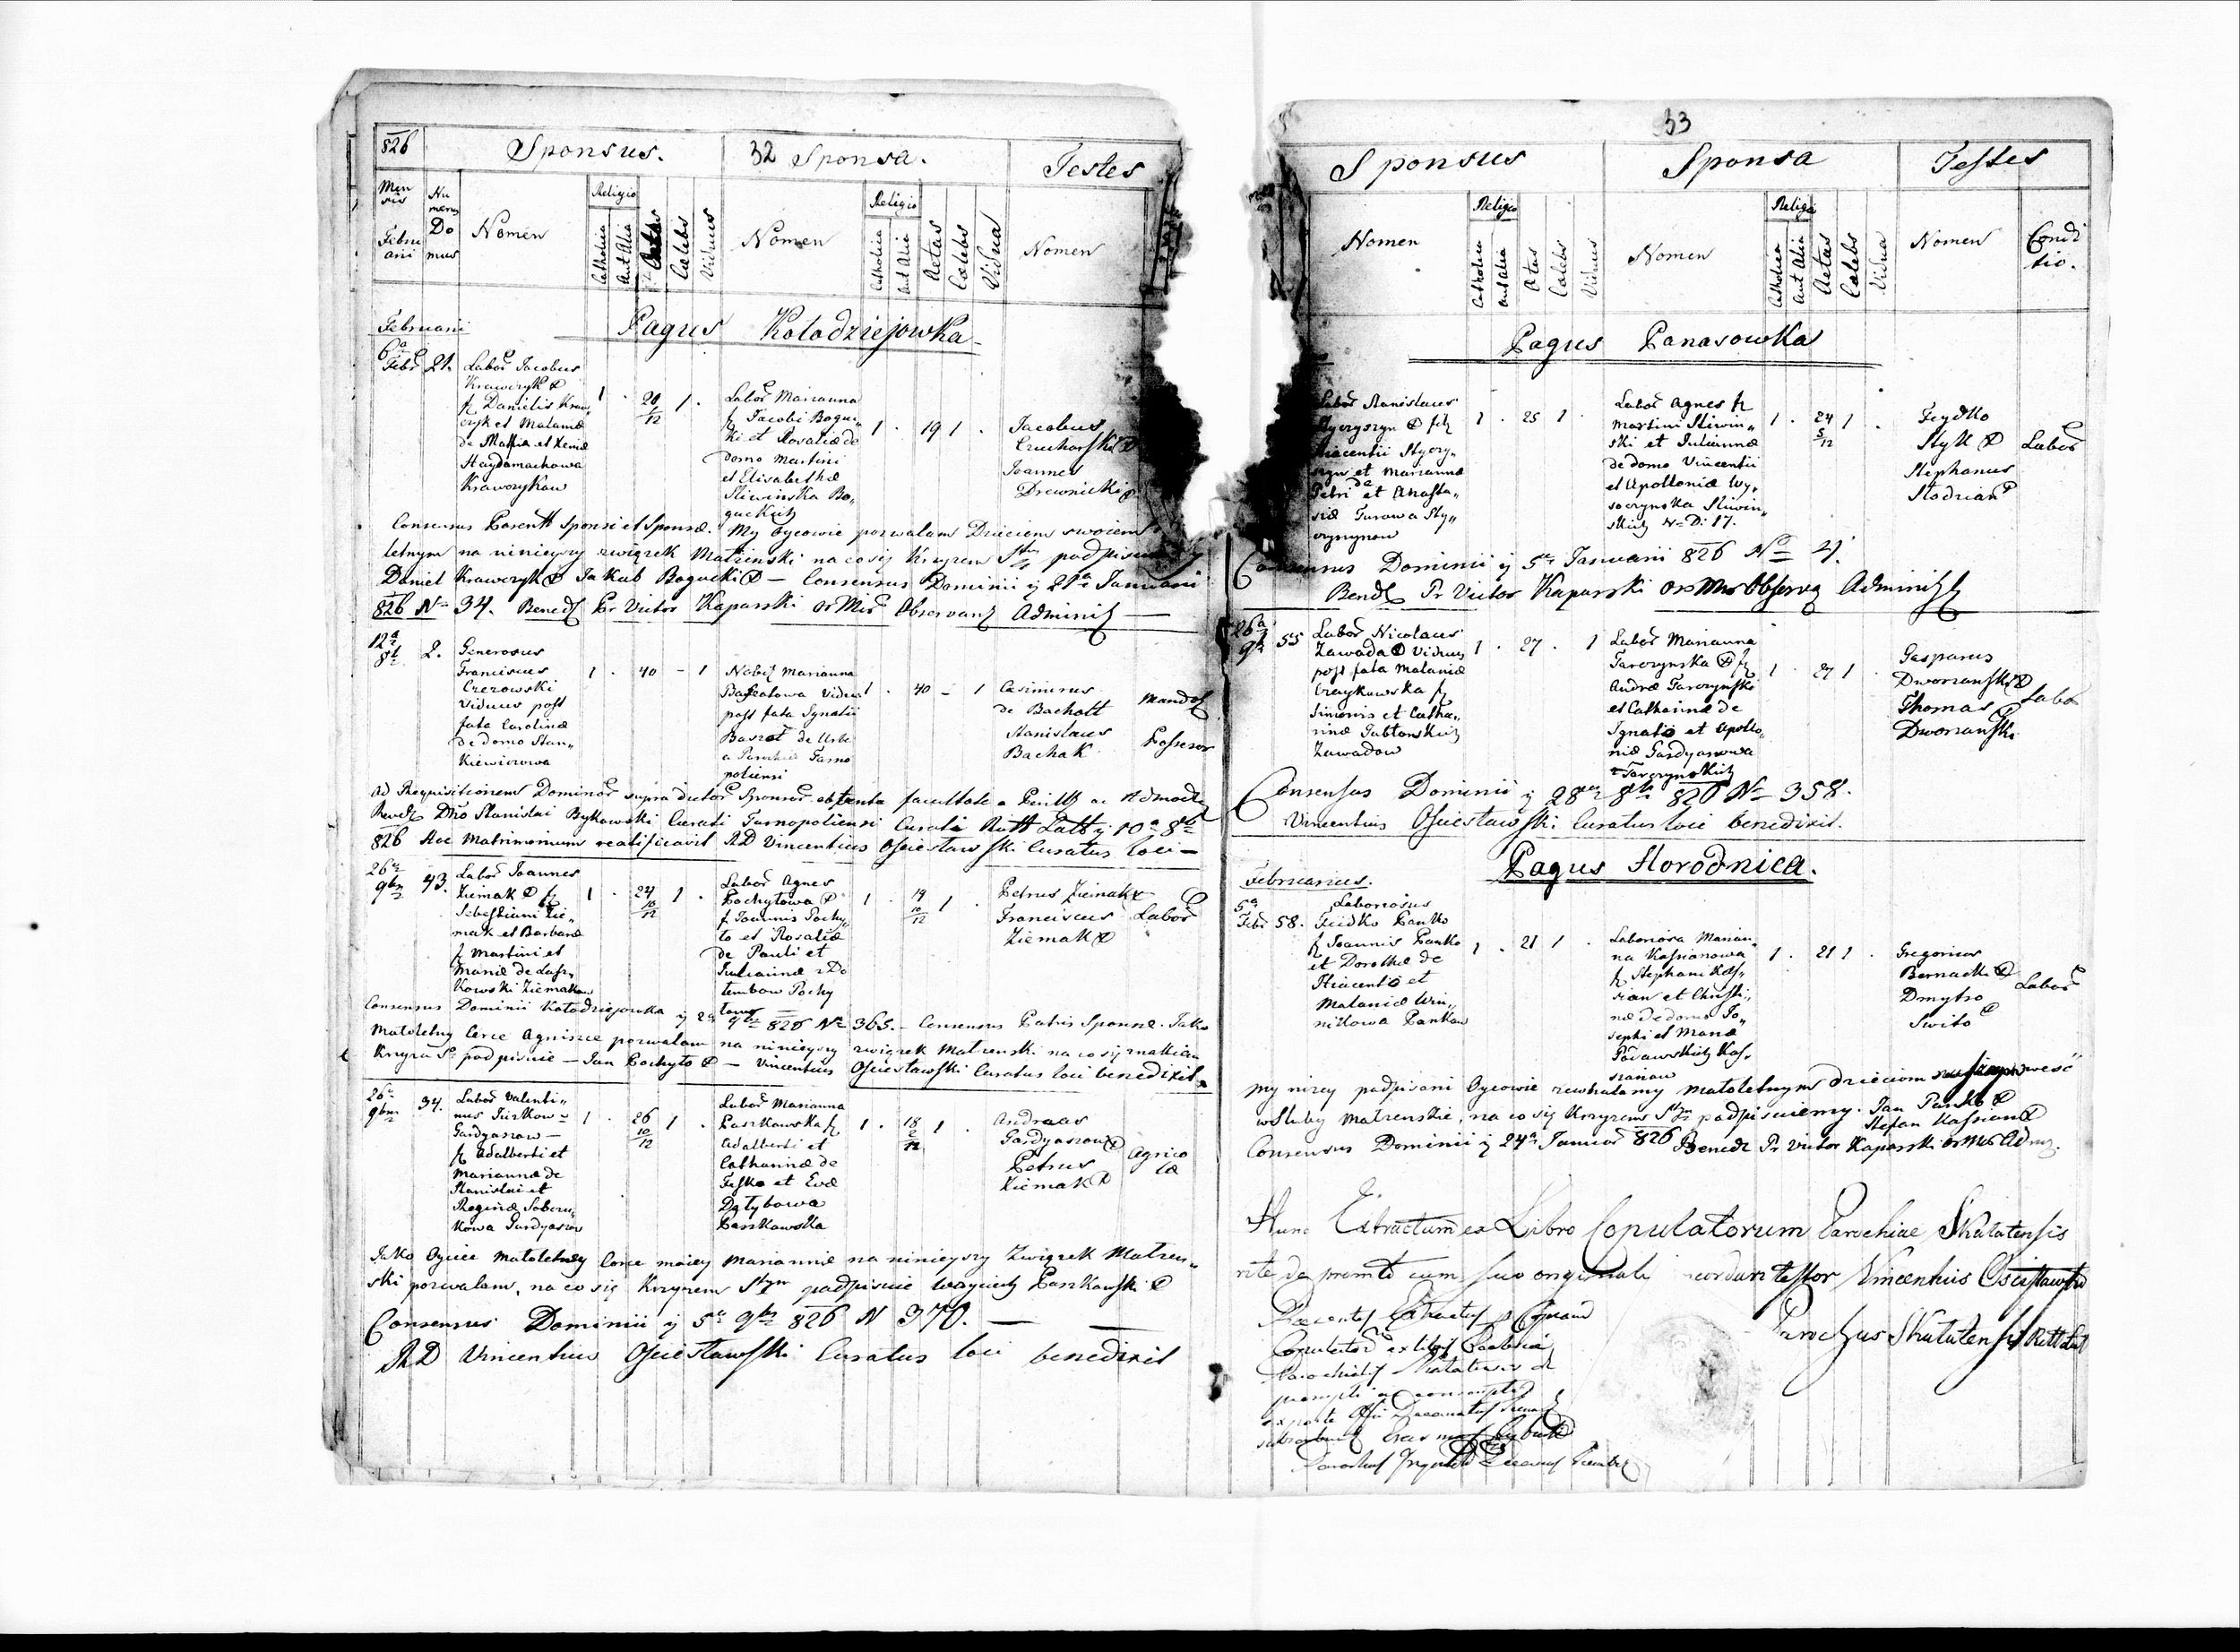 826
Sponsus.
32 Sponsa.
Testes
Men
sis
Nu
merus
Do
mus
Febru
arii
Nomen
Religio
Catholica
Aut Alia
Caelebs
Viduus
Nomen
Religio
Catholica
Aut Alia
Aetas
Caelebs
Vidua
Nomen
Februarii
Pagus Kołodziejowka
6a
Febr
21.
Labor Jacobus
Krawczyk
f Danielis Kraw„
czyk et Malaniæ
de Mathia et Xeniæ
Haydamachowa
Krawczykow
1 . 20 1 .
12
Labor Marianna
f Jacobi Boguc„
ki et Rosaliæ de
domo Martini
et Elisabethæ
Sliwinska Bo„
guckich
1 . 19 1 .
Jacobus
Czucharski
Joannes
Drewnicki
Consensus Parent Sponsi et Sponsæ. My Oycowie pozwalam Dzieciem swoiem
letnym na ninieyszy związek Małżenski na co się Krzyzem Stym podpisuiemy
Daniel Krawczyk Jakub Bogucki — Consensus Dominii ÿ 21a Januarii
826 No 34. Bened Pr Victor Kaparski Or Min Observant Administ —
12a
8br
2.
Generosus
Franciscus
Czezowski
Viduus post
fata Carolinæ
de domo Stan„
Kiewiczowa
1 . 40 - 1
Nobil Marianna
Vidua
post fata Ignatii
de Urbe
a Parochia Tarno
poliensi
1 . 40 - 1
Casimirus
de Bachott
Stanislaus
Bachak
Mandat
Possesor
Ad Requisitionem Dominor supra dictor Sponsor obtenta facultate a
Revd Dno Stanislai Bykowski Curati Tarnopoliensi Curati Ritt Latt ÿ 10a 8br
826 Hoc Matrimonium reatificavit RD Vincentius Osciesławski Curatus loci —
26a
9br
43.
Labor Joannes
Ziemak f
Sebestiani Zie„
mak et Barbaræ
f Martini et
Mariæ de
Kowski Ziemakow
1 . 24 1 .
10
12
Labor Agnes
Pochytowa
f Joannis Pochy
to et Rosaliæ
de Pauli et
Juliannæ z Do
tembow Pochy
towa
1 . 19 1 .
10
12
Petrus Ziemak
Franciscus
Ziemak
Labor
Consensus Dominii Kołodziejowka ÿ 2a 9br 826 No 365. — Consensus Patris Sponsæ. Jako
Małoletny Corce Agnisce pozwalam na ninieyszy związek Małzenski na co się
Krzyza So podpisuie — Jan Pochyto — Vincentius Osciesławski Curatus loci benedixit
26a
9bris
34.
Labor Valenti„
nus Jurkow
Gardyaszow —
f Adalberti et
Mariannæ de
Stanislai et
Reginæ
Kowa Gardyaszow
1 . 26 1 .
10
12
Labor Marianna
Paszkowska f
Adalberti et
Catharinæ de
Fesko et Evæ
Paszkowska
1 . 18 1 .
2
12
Andreas
Gardyaszow
Petrus
Ziemak
Agrico
læ
Jako Oyciec Małoletney Corce moiey Mariannie na ninieyszy Związek Małzen„
ski pozwalam, na co się Krzyzem Stym podpisuie Woyciech Paszkowski
Consensus Dominii ÿ 5a 9bris 826 N 370. —
RD Vincentius Osciesławski Curatus loci benedixit
33
Sponsus
Sponsa
Testes
Nomen
Religio
Catholica
aut alia
Aetas
Caelebs
Viduus
Nomen
Religi
Catholica
Aut Alia
Aetas
Caelebs
Vidua
Nomen
Condi
tio.
Pagus Panasowka
Labor Stanislaus
fil
Hiacentii Styczy„
szyn et Mariannæ
de
Petri et Anasta„
siæ Turowa Sty„
czyszynow
1 . 25 1 .
Labor Agnes f
Martini Sliwin„
ski et Juliannæ
de domo Vincentii
et Apolloniæ Wy„
soczynska Sliwin„
skich No D: 17.
1 . 24 1 .
5
12
Feydko
Styk
Stephanus
Stodrian
Labor
Consensus Dominii ÿ 5a Januarii 826 No 4.
Bened Pr Victor Kaparski Or Min Observ Administ
26a
9br
55
Labor Nicolaus
Zawada Viduus
post fata Malaniæ
Czaykowska f
Simonis et Catha„
rinæ Jabłonskich
Zawadow
1 . 27 . 1
Labor Marianna
Tarczynska f
Andreæ Tarczynski
et Catharinæ de
Ignatio et Apollo„
niæ Gardyasowa
Tarczynskich
1 . 27 1 .
Gasparus
Dworzanski
Thomas
Dworzanski
Labor
Consensus Dominii ÿ 28a 8br 826 No 358.
Vincentius Osciesławski Curatus loci benedixit.
Pagus Horodnica.
Februarius.
5a
Febr
58.
Laboriosus
Feidko Panko
f Joannis Panko
et Dorotheæ de
Hiacento et
Malaniæ Win„
nikowa Pankow
1 . 21 1 .
Laboriosa Marian„
na Kassianowa
f Stephani Kas„
sian et Christi„
næ de domo Jo„
sephi et Mariæ
Kas„
sianow
1 . 21 1 .
Gregorius
Bernacki
Dmytro
Swito
Labor
My nizey podpisani Oycowie zezwalamy małoletnym dzieciom weść
w Sluby Małzenskie, na co się Krzyzem Stym podpisuiemy. Jan Panko
Stefan Kassian
Consensus Dominii ÿ 24a Januar 826 Bened Pr Victor Kaparski Or Min Adm.
Hunc Extractum ex Libro Copulatorum Parochiae Skałatensis
rite depromtum cum suo originali concordare testor Vincentius Osciesławski
Parochus Skałatensis Ritt Lat